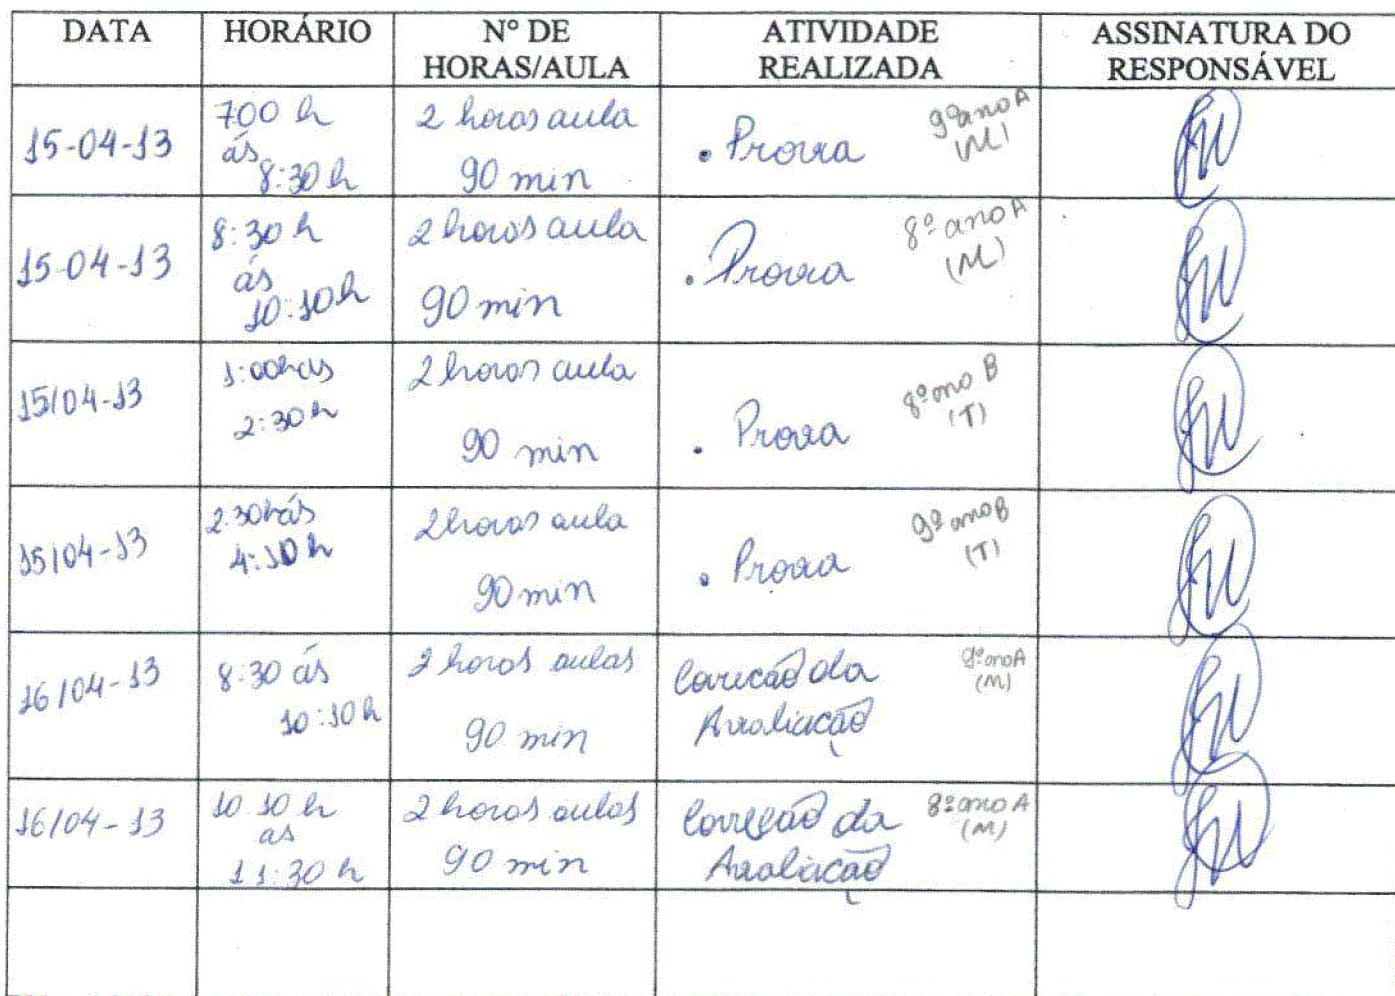 DATA HORÁRIO Nº DE HORAS/AULA ATIVIDADE REALIZADA ASSINATURA DO RESPONSÁVEL
15-04-13
700 h
ás
8:30 h
2 horas aula
90 min
. Prova
9º ano A
(M)
15-04-13
8:30 h
ás
10:10 h
2 horas aula
90 min
. Prova
8º ano A
(M)
15/04-13
1:00h ás
2:30 h
2 horas aula
90 min
. Prova
8º ano B
(T)
15/04-13
2:30h ás
4:10 h
2 horas aula
90 min
. Prova
9º ano B
(T)
16/04-13
8:30 ás
10:10 h
2 horas aulas
90 min
Correção da
Avaliação
9º ano A
(M)
16/04-13
10 10 h
as
11:30 h
2 horas aulas
90 min
Correção da
Avaliação
8º ano A
(M)